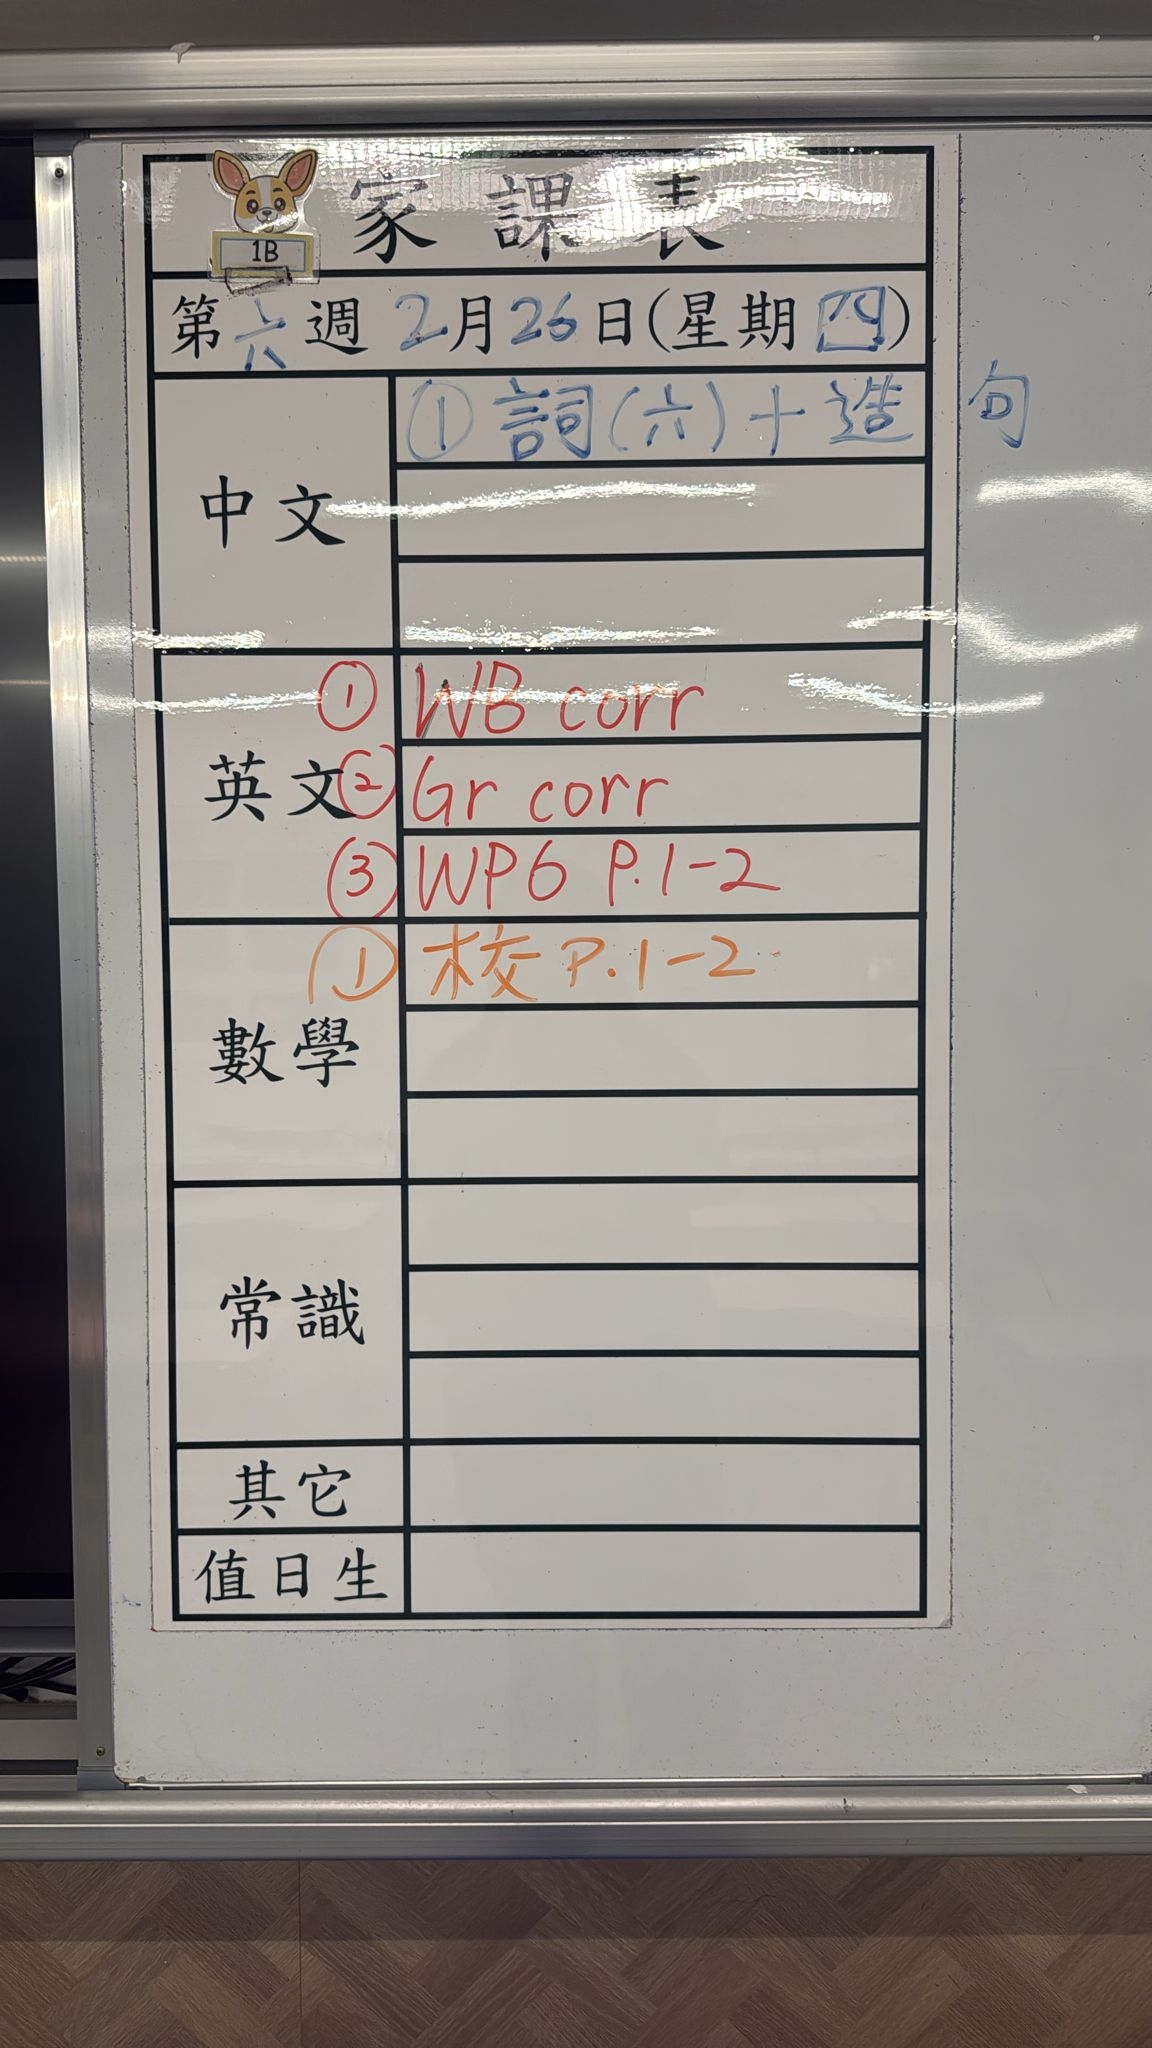 家課表
1B
第六週 2月26日(星期四)
中文
① 詞(六)+造句
英文
① WB corr
② Gr corr
③ WP6 P.1-2
數學
① 校 P.1-2
常識
其它
值日生